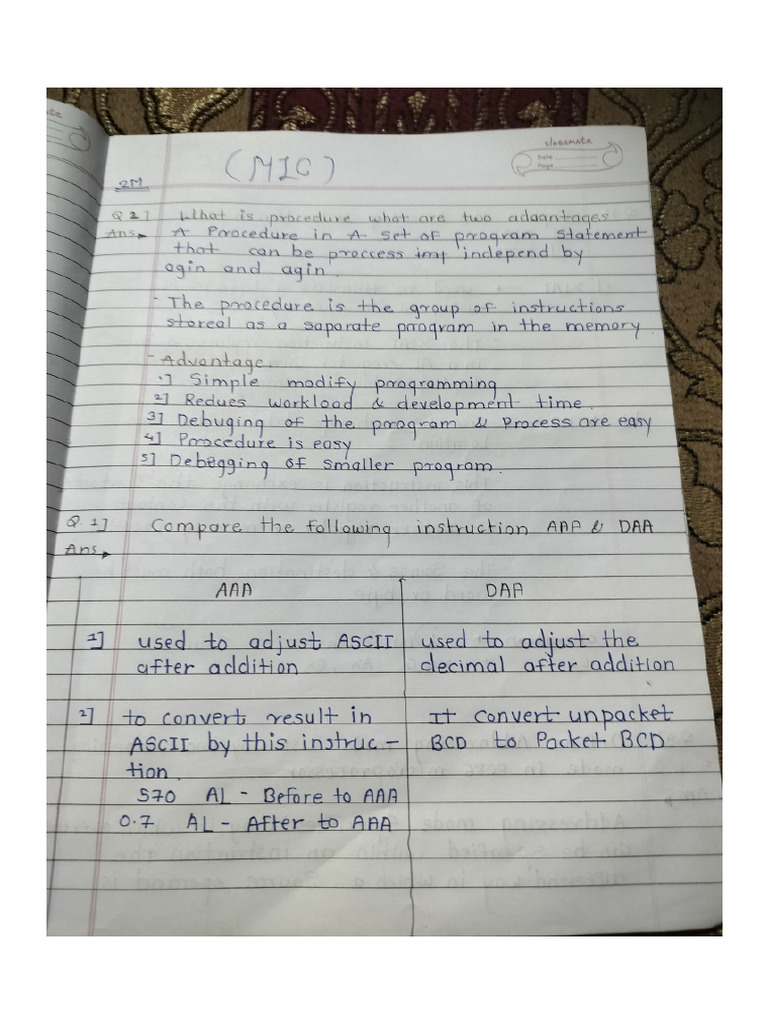 classmate
Date
Page
(MIC)
2M
Q 2] What is procedure what are two adaantages
Ans→ A Procedure in A set of program statement
that can be proccess imf independ by
ogin and agin.
- The procedure is the group of instructions
storeal as a saparate program in the memory
- Advantage.
1] Simple modify programming
2] Redues workload & development time.
3] Debuging of the program & Process are easy
4] Procedure is easy
5] Debegging of smaller program.
Q 1] Compare the following instruction AAA & DAA
Ans→
AAA DAA
1] used to adjust ASCII used to adjust the
after addition decimal after addition
2] to convert result in It convert unpacket
ASCII by this instruc- BCD to Packet BCD
tion.
570 AL - Before to AAA
0.7 AL - After to AAA